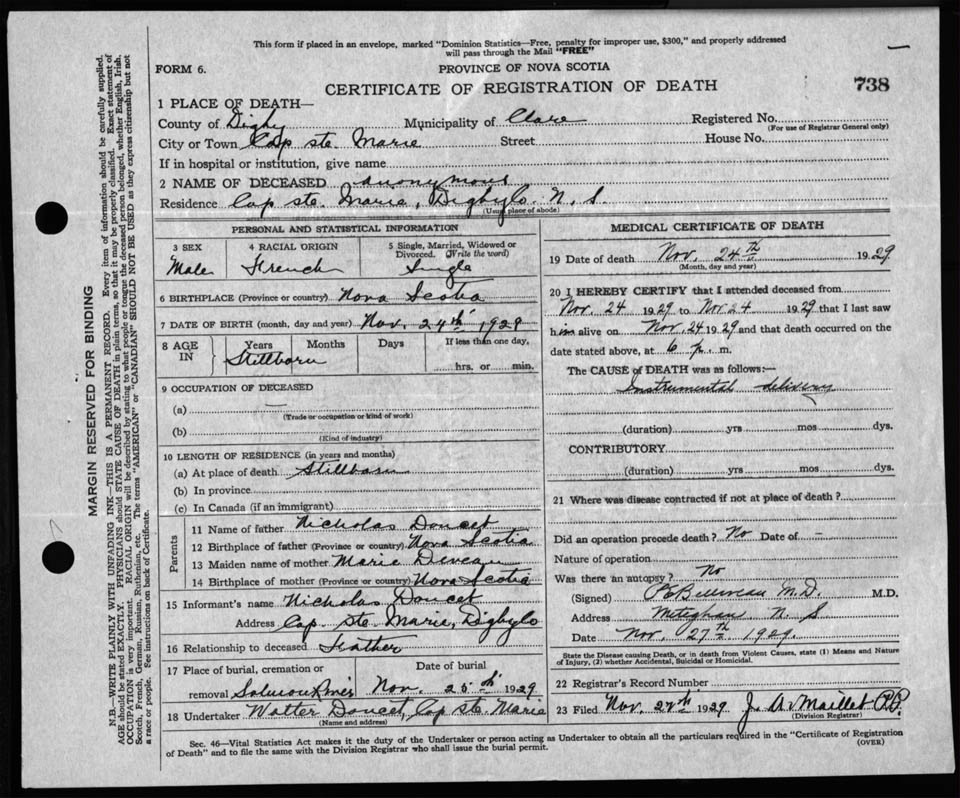 This form if placed in an envelope, marked "Dominion Statistics—Free, penalty for improper use, $300," and properly addressed
will pass through the Mail "FREE"
FORM 6.
PROVINCE OF NOVA SCOTIA
CERTIFICATE OF REGISTRATION OF DEATH
738
1 PLACE OF DEATH—
County of Digby Municipality of Clare Registered No.
(For use of Registrar General only)
City or Town Cap ste. Marie Street House No.
If in hospital or institution, give name
2 NAME OF DECEASED Anonymous
Residence Cap ste. Marie, Digby Co. N. S.
(Usual place of abode)
PERSONAL AND STATISTICAL INFORMATION
3 SEX 4 RACIAL ORIGIN 5 Single, Married, Widowed or
Divorced. (Write the word)
Male French Single
6 BIRTHPLACE (Province or country) Nova Scotia
7 DATE OF BIRTH (month, day and year) Nov. 24th 1929
8 AGE IN Years Months Days If less than one day,
Stillborn hrs. or min.
9 OCCUPATION OF DECEASED
(a) —
(Trade or occupation or kind of work)
(b)
(Kind of industry)
10 LENGTH OF RESIDENCE (in years and months)
(a) At place of death Stillborn
(b) In province
(c) In Canada (if an immigrant)
Parents
11 Name of father Nicholas Doucet
12 Birthplace of father (Province or country) Nova Scotia
13 Maiden name of mother Marie Deveau
14 Birthplace of mother (Province or country) Nova Scotia
15 Informant's name Nicholas Doucet
Address Cap. Ste. Marie, Digby Co
16 Relationship to deceased Father
17 Place of burial, cremation or Date of burial
removal Salmon River Nov. 25th 1929
18 Undertaker Walter Doucet, Cap ste. Marie
(Name and address)
MEDICAL CERTIFICATE OF DEATH
19 Date of death Nov. 24th 1929
(Month, day and year)
20 I HEREBY CERTIFY that I attended deceased from
Nov. 24 1929 to Nov 24 1929 that I last saw
him alive on Nov. 24 1929 and that death occurred on the
date stated above, at 6 p. m.
The CAUSE of DEATH was as follows:—
Instrumental delivery
(duration) yrs mos dys.
CONTRIBUTORY
(duration) yrs mos dys.
21 Where was disease contracted if not at place of death?
Did an operation precede death? No Date of –
Nature of operation
Was there an autopsy? No
(Signed) Belliveau M.D. M.D.
Address Meteghan N S
Date Nov. 27th 1929.
State the Disease causing Death, or in death from Violent Causes, state (1) Means and Nature
of Injury, (2) whether Accidental, Suicidal or Homicidal.
22 Registrar's Record Number
23 Filed Nov. 27th 1929 J. A. Maillet P.P.
(Division Registrar)
Sec. 46—Vital Statistics Act makes it the duty of the Undertaker or person acting as Undertaker to obtain all the particulars required in the "Certificate of Registration
of Death" and to file the same with the Division Registrar who shall issue the burial permit.
(OVER)
MARGIN RESERVED FOR BINDING
N.B.—WRITE PLAINLY WITH UNFADING INK—THIS IS A PERMANENT RECORD. Every item of information should be carefully supplied.
AGE should be stated EXACTLY. PHYSICIANS should STATE CAUSE OF DEATH in plain terms, so that it may be properly classified. Exact statement of
OCCUPATION is very important. RACIAL ORIGIN will be described by stating to what people or tongue the deceased person belonged, whether English, Irish,
Scotch, French, German, Russian, Ruthenian, etc. The terms "AMERICAN" or "CANADIAN" SHOULD NOT BE USED as they express citizenship but not
a race or people. See instructions on back of Certificate.